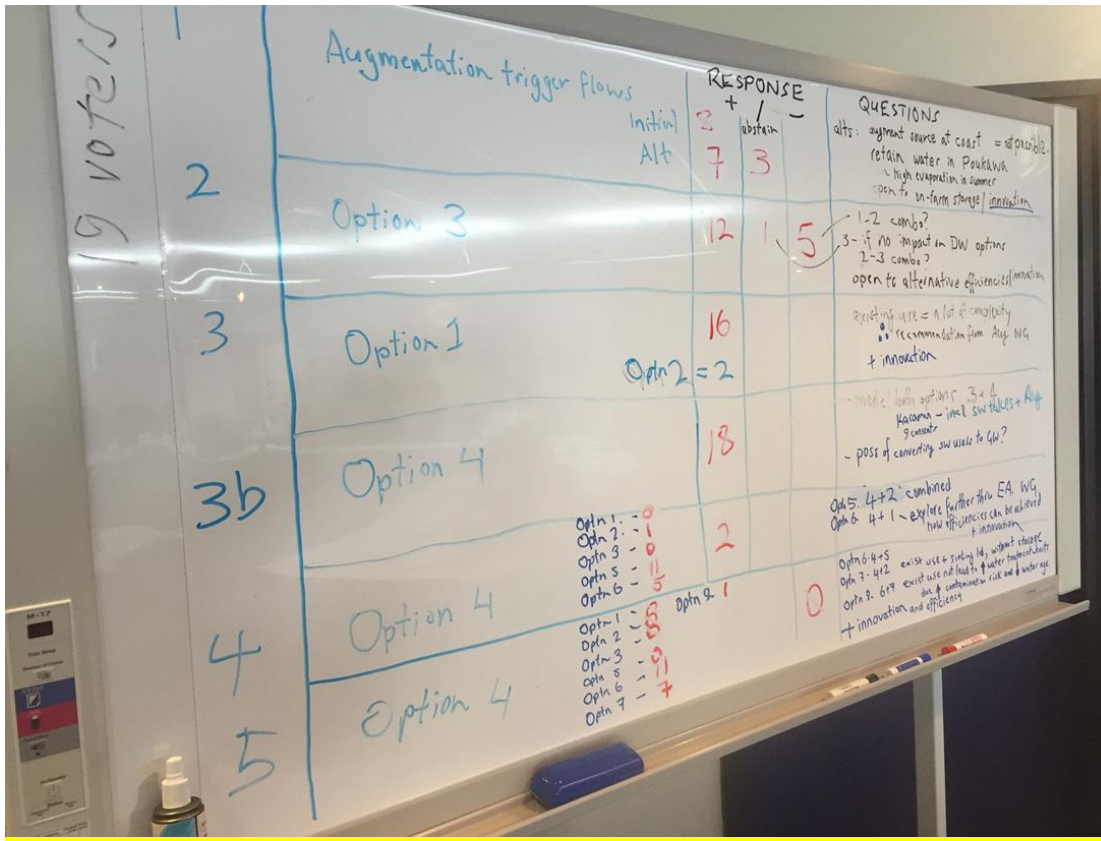 19 voters
1
Augmentation trigger flows
Initial
Alt
RESPONSE
+ / -
8
abstain
7 3
QUESTIONS
alts: augment source at coast = not possible.
retain water in Poukawa
high evaporation in summer
open to on-farm storage/innovation
2
Option 3
12 1 5
1-2 combo?
3- if no impact on DW options
2-3 combo?
open to alternative efficiencies/innovation
3
Option 1
16
Optn 2 = 2
existing use = a lot of complexity
∴ recommendation from Aug WG
+ innovation
3b
Option 4
18
- model both options 3+4
Karamu - incl SW takes + Aug
9 consents
- poss of converting SW users to GW?
4
Option 4
Optn 1. - 0
Optn 2. - 1
Optn 3 - 0
Optn 5 - 11
Optn 6 - 5
2
Optn 5. 4+2 combined
Optn 6. 4+1 - explore further thru EA. WG
how efficiencies can be achieved
+ innovation
5
Option 4
Optn 1 -
Optn 2 -
Optn 3 - 0
Optn 5 - 11
Optn 6 -
Optn 7 - 7
1
0
Optn 6-4+5 exist use + sinking lid, without storage
Optn 7-4+2
Optn 8. 6+7 exist use not lead to ↑ water treatment costs
due ↑ contamination risk and ↑ water age
+ innovation and efficiency
M-17